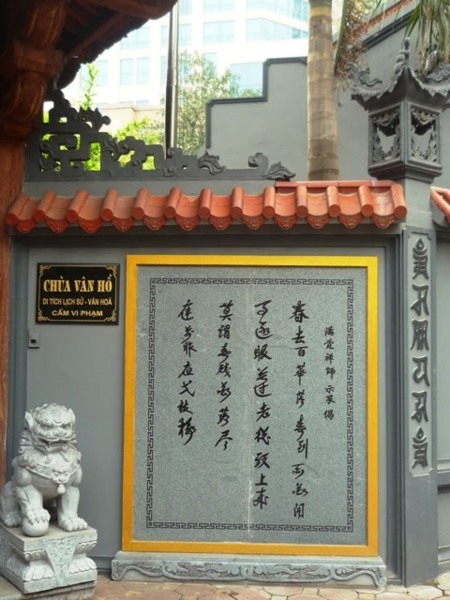 CHÙA VÂN HỒ
DI TÍCH LỊCH SỬ - VĂN HOÁ
CẤM VI PHẠM
滿覺禪師 示眾偈
春去百華落春到百華開
事逐眼前過老從頭上來
莫謂春殘華落盡
庭前昨夜一枝梅